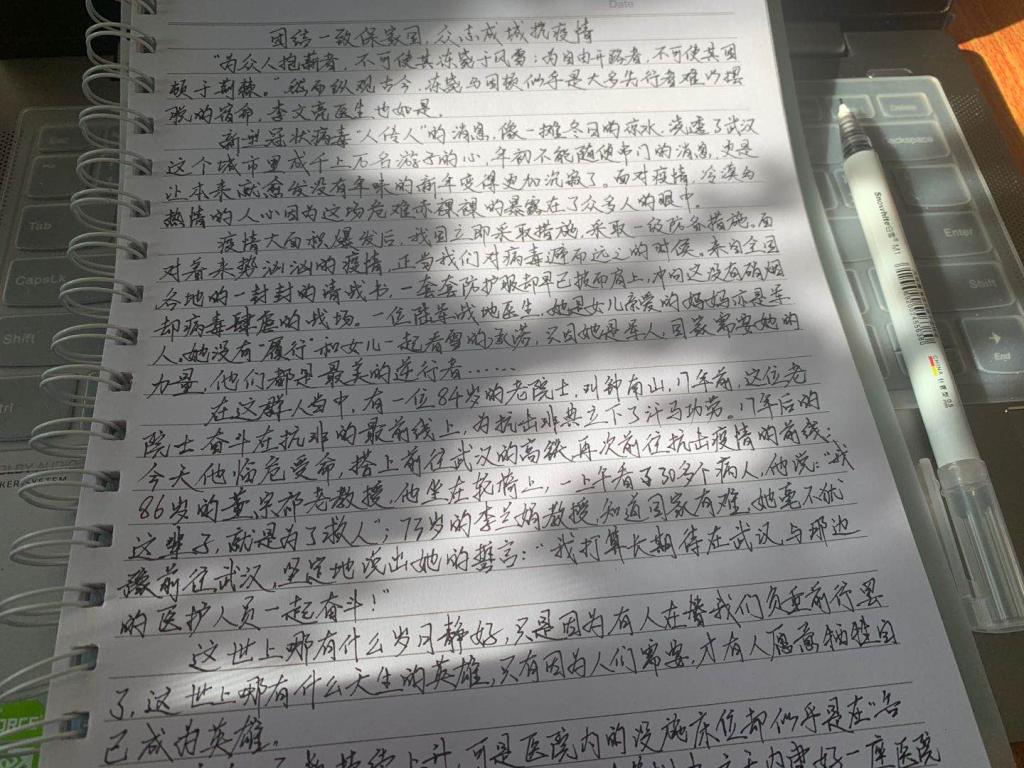 Date
团结一致保家国 众志成城抗疫情
"为众人抱薪者,不可使其冻毙于风雪;为自由开路者,不可使其困
顿于荆棘。"然而纵观古今,冻毙与困顿似乎是大多先行者难以摆
脱的宿命,李文亮医生也如是。
新型冠状病毒"人传人"的消息,像一摊冬日的凉水,浇透了武汉
这个城市里成千上万名游子的心,年初不能随便串门的消息,更是
让本来就愈发没有年味的新年变得更加沉寂了。面对疫情,冷漠与
热情的人心因为这场危难赤裸裸的暴露在了众多人的眼中。
疫情大面积爆发后,我国立即采取措施,采取一级防备措施。面
对着来势汹汹的疫情,正当我们对病毒避而远之的时候。来自全国
各地的一封封的请战书,一套套防护服却早已披而肩上,冲向这没有硝烟
却病毒肆虐的战场。一位陆军战地医生,她是女儿亲爱的妈妈亦是军
人,她没有"履行"和女儿一起看雪的承诺,只因她是军人,国家需要她的
力量,他们都是最美的逆行者……
在这群人当中,有一位84岁的老院士,叫钟南山,17年前,这位老
院士奋斗在抗非的最前线上,为抗击非典立下了汗马功劳。17年后的
今天他临危受命,搭上前往武汉的高铁,再次前往抗击疫情的前线;
86岁的董宗祁老教授,他坐在轮椅上,一上午看了30多个病人,他说:"我
这辈子,就是为了救人";73岁的李兰娟教授,知道国家有难,她毫不犹
豫前往武汉,坚定地说出她的誓言:"我打算长期待在武汉,与那边
的医护人员一起奋斗!"
这世上哪有什么岁月静好,只是因为有人在替我们负重前行罢
了,这世上哪有什么天生的英雄,只有因为人们需要,才有人愿意牺牲自
己成为英雄。
持续上升,可是医院内的设施床位却似乎是在"告
天内建好一座医院
Tab
CapsLk
Shift
Ctrl
Backspace
Delete
Enter
Shift
End
Snowhite